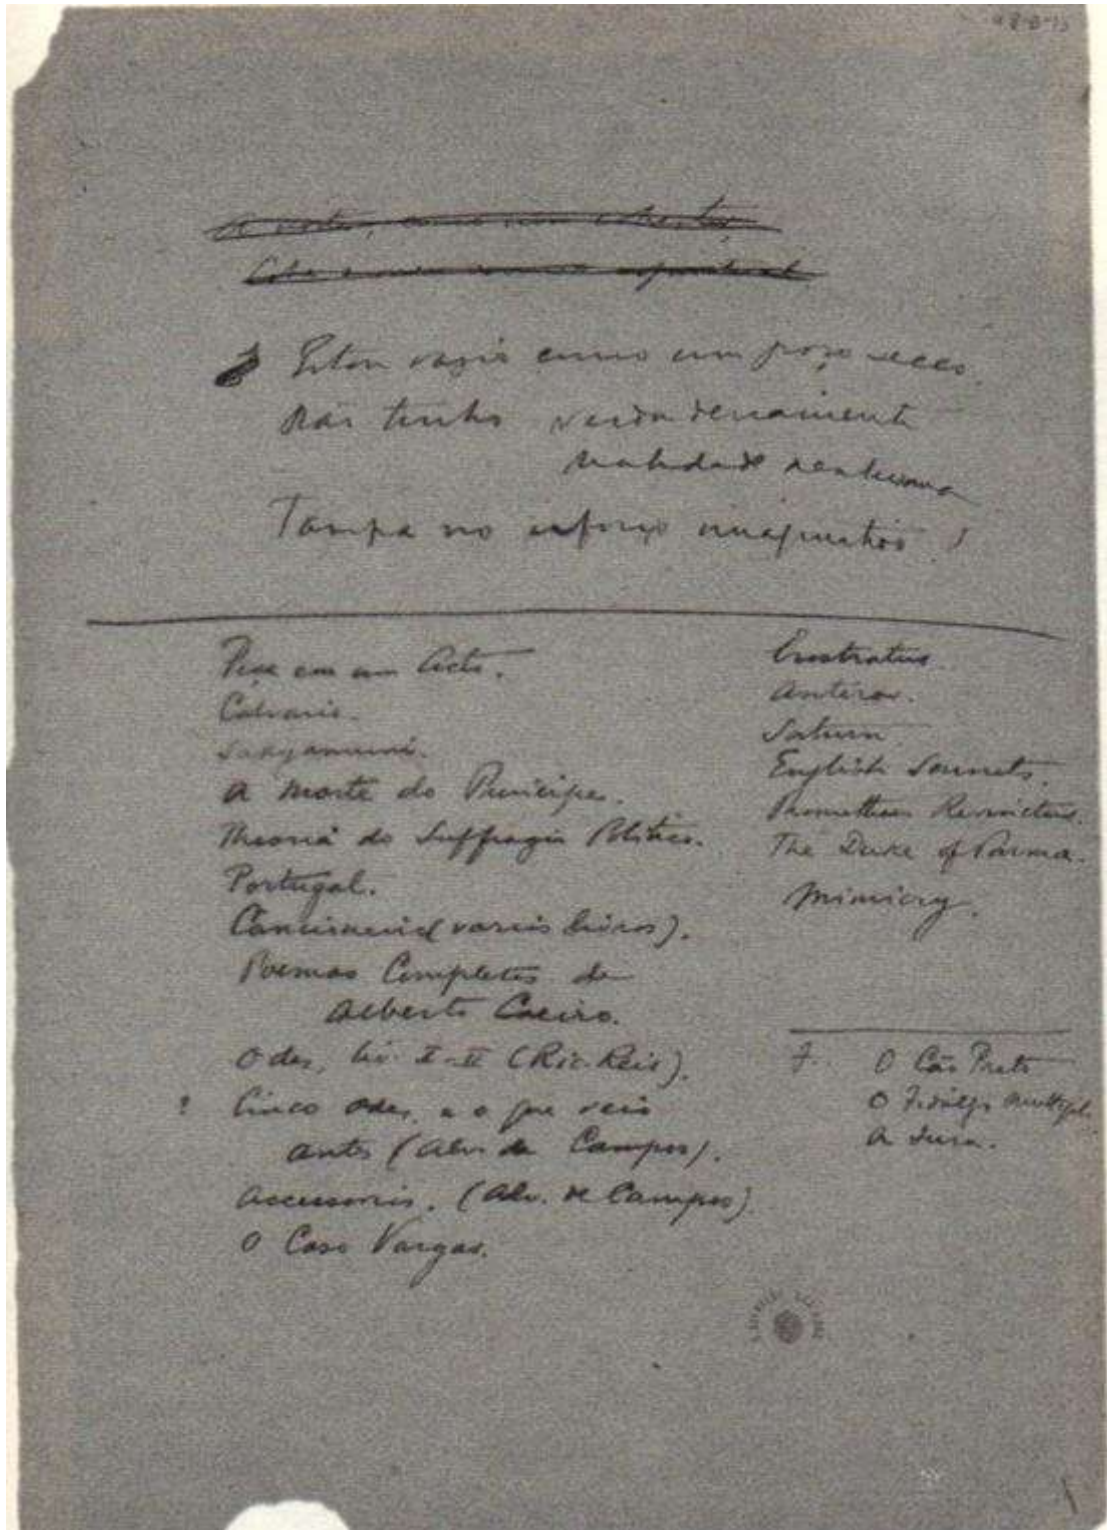 Estou vazio como um poço secco.
Não tenho verdadeiramente
realidade nenhuma
Tampa no esforço imaginativo!
Peça em um Acto.
Calvario.
Sakyamuni.
A Morte do Principe.
Theoria do Suffragio Politico.
Portugal.
Cancioneiro (varios livros).
Poemas Completos de
Alberto Caeiro.
Odes, liv. I-II (Ric. Reis).
? Cinco Odes, e o que veio
antes (Alv. de Campos).
Accessorios. (Alv. de Campos)
O Caso Vargas.
Erostratus.
Anteros.
Saturn.
English Sonnets.
Prometheus Revinctus.
The Duke of Parma.
Mimicry.
O Cão Preto
O Fidalgo
A